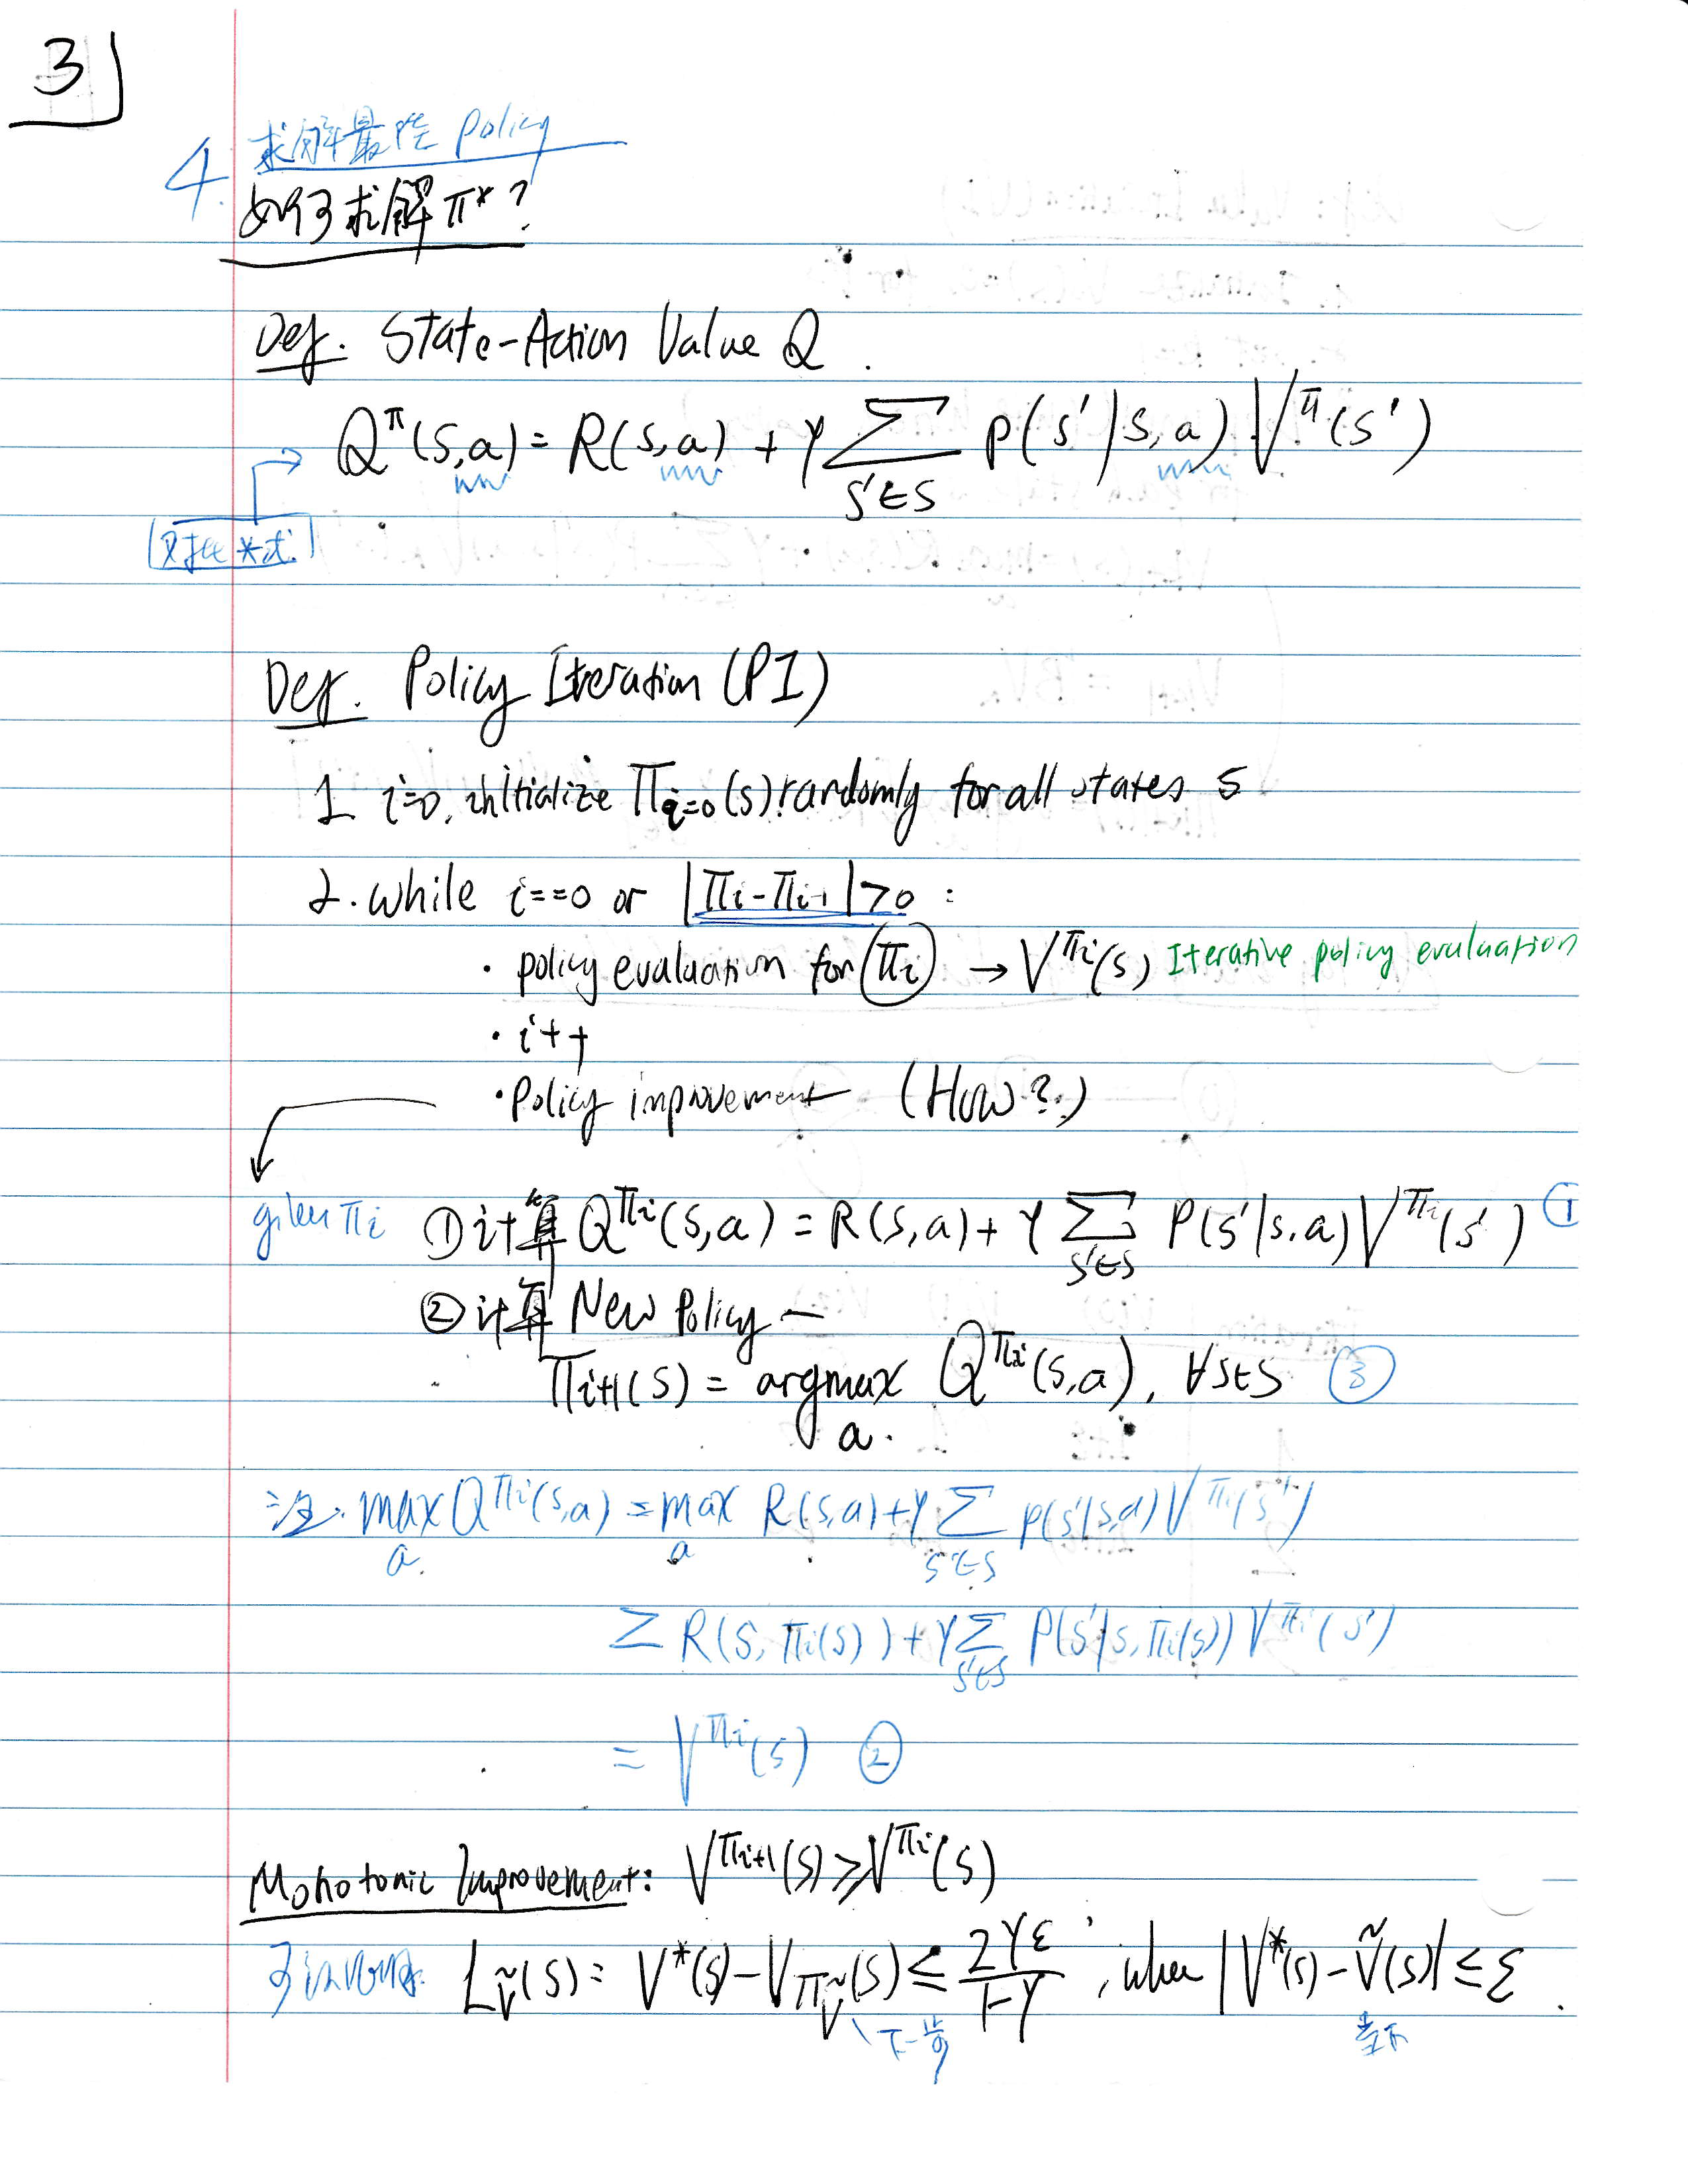 3
4. 求解最佳 policy
如何求解 π*?
Def. State-Action Value Q.
Q^π(s,a) = R(s,a) + γ Σ_{s'∈S} P(s'|s,a) V^π(s')
对比 *式
Def. Policy Iteration (PI)
1. i=0, initialize π_{i=0}(s) randomly for all states s
2. while i==0 or |π_i - π_{i-1}| > 0 :
· policy evaluation for π_i → V^{π_i}(s) Iterative policy evaluation
· i++
· Policy improvement (How?)
given π_i ① 计算 Q^{π_i}(s,a) = R(s,a) + γ Σ_{s'∈S} P(s'|s,a) V^{π_i}(s') ①
② 计算 New Policy —
π_{i+1}(s) = argmax_a Q^{π_i}(s,a), ∀s∈S ③
注. max_a Q^{π_i}(s,a) = max_a R(s,a) + γ Σ_{s'∈S} P(s'|s,a) V^{π_i}(s')
≥ R(s, π_i(s)) + γ Σ_{s'∈S} P(s'|s, π_i(s)) V^{π_i}(s')
= V^{π_i}(s) ②
Monotonic Improvement: V^{π_{i+1}}(s) ≥ V^{π_i}(s)
L_Ṽ(s) = V*(s) - V_{π_Ṽ}(s) ≤ 2γε/(1-γ), when |V*(s) - Ṽ(s)| ≤ ε.
下一步 当下